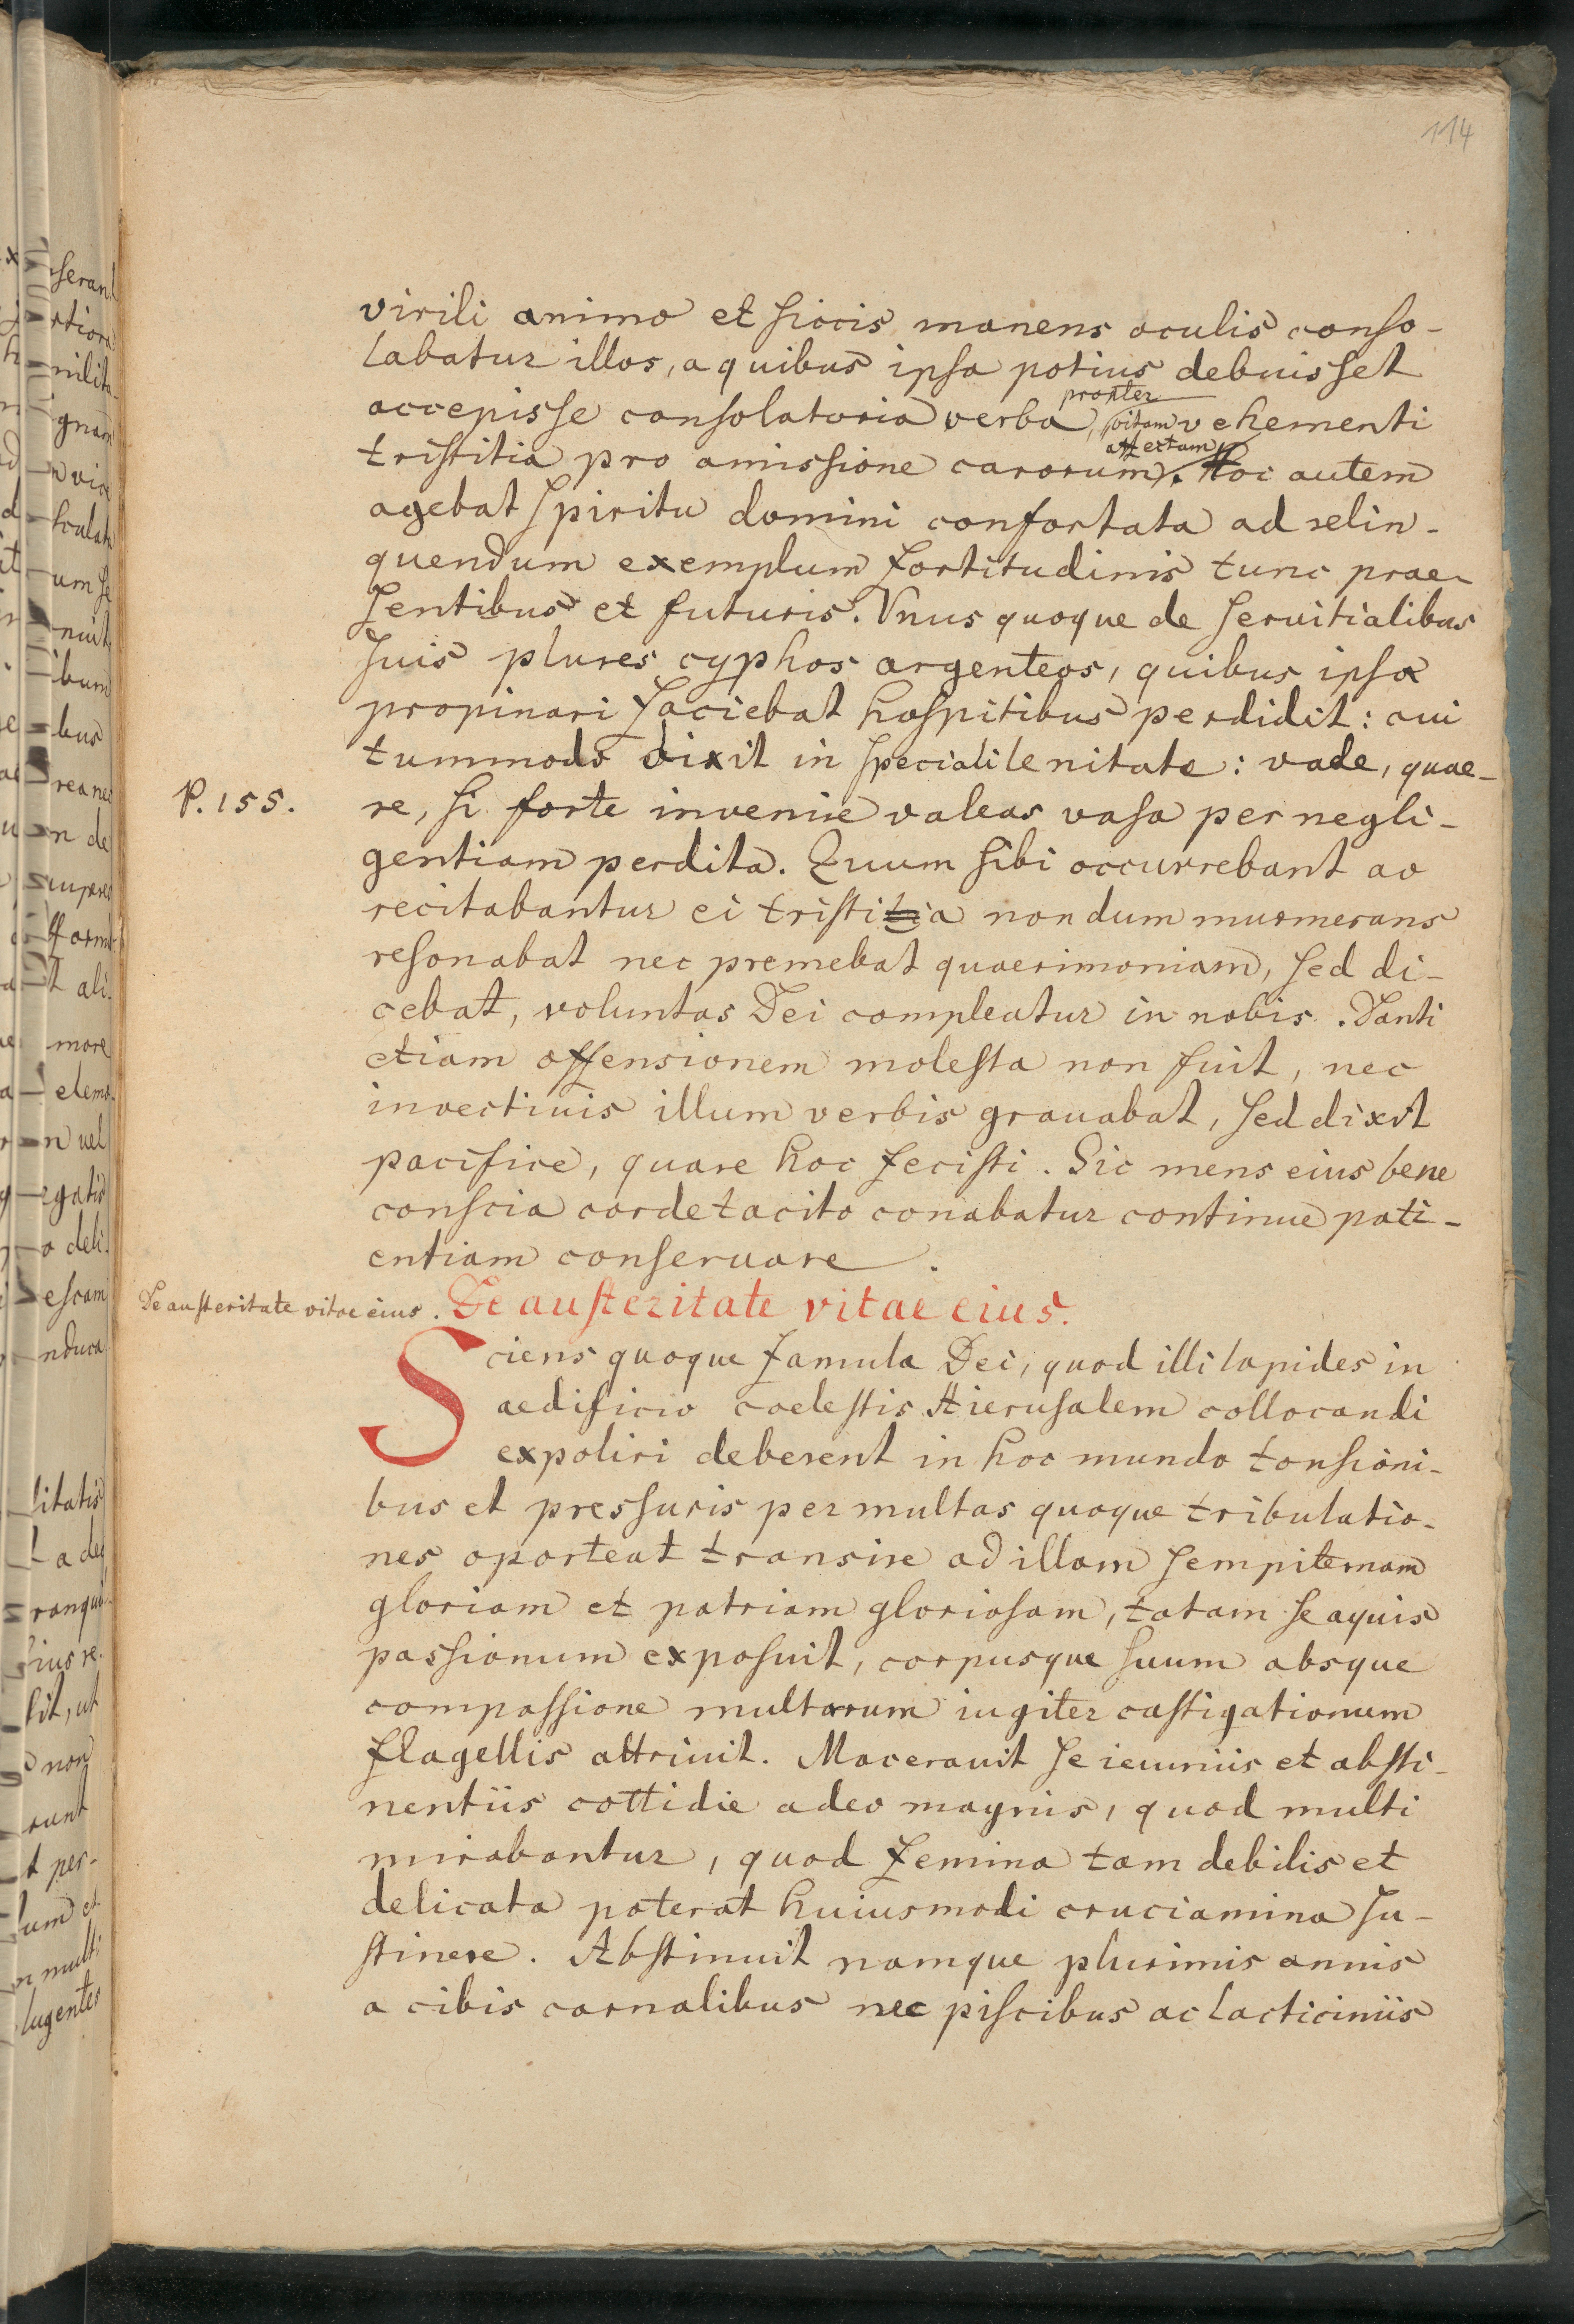 114
virili animo et siccis manens oculis conso-
labatur illos, a quibus ipsa potius debuisset
propter
accepisse consolatoria verba, vitam vehementi
affectam
tristitia pro amissione carorum. Hoc autem
agebat spiritu domini confortata ad relin-
quendum exemplum fortitudinis tunc prae-
sentibus et futuris. Vnus quoque de seruitialibus
suis plures cyphos argenteos, quibus ipsa
propinari faciebat hospitibus perdidit: cui
tummodo dixit in speciali lenitate: vade, quae-
P. 155.
re, si forte invenire valeas vasa per negli-
gentiam perdita. Quum sibi occurrebant ac
recitabantur ei tristitia non dum murmerans
resonabat nec premebat quaerimoniam, sed di-
cebat, voluntas Dei compleatur in nobis. Danti
etiam offensionem molesta non fuit, nec
invectiuis illum verbis grauabat, sed dixit
pacifice, quare hoc fecisti. Sic mens eius bene
conscia corde tacito conabatur continue pati-
entiam conseruare.
De austeritate vitae eius. De austeritate vitae eius.
Sciens quoque famula Dei, quod illi lapides in
aedificio coelestis Hierusalem collocandi
expoliri deberent in hoc mundo tonsioni-
bus et pressuris per multas quoque tribulatio-
nes oporteat transire ad illam sempiternam
gloriam et patriam gloriosam, totam se aquis
passionum exposuit, corpusque suum absque
compassione multarum iugiter castigationum
flagellis attriuit. Macerauit se ieiuniis et absti-
nentiis cottidie adeo magnis, quod multi
mirabantur, quod femina tam debilis et
delicata poterat huiusmodi cruciamina su-
stinere. Abstinuit namque plurimis annis
a cibis carnalibus nec piscibus ac lacticiniis